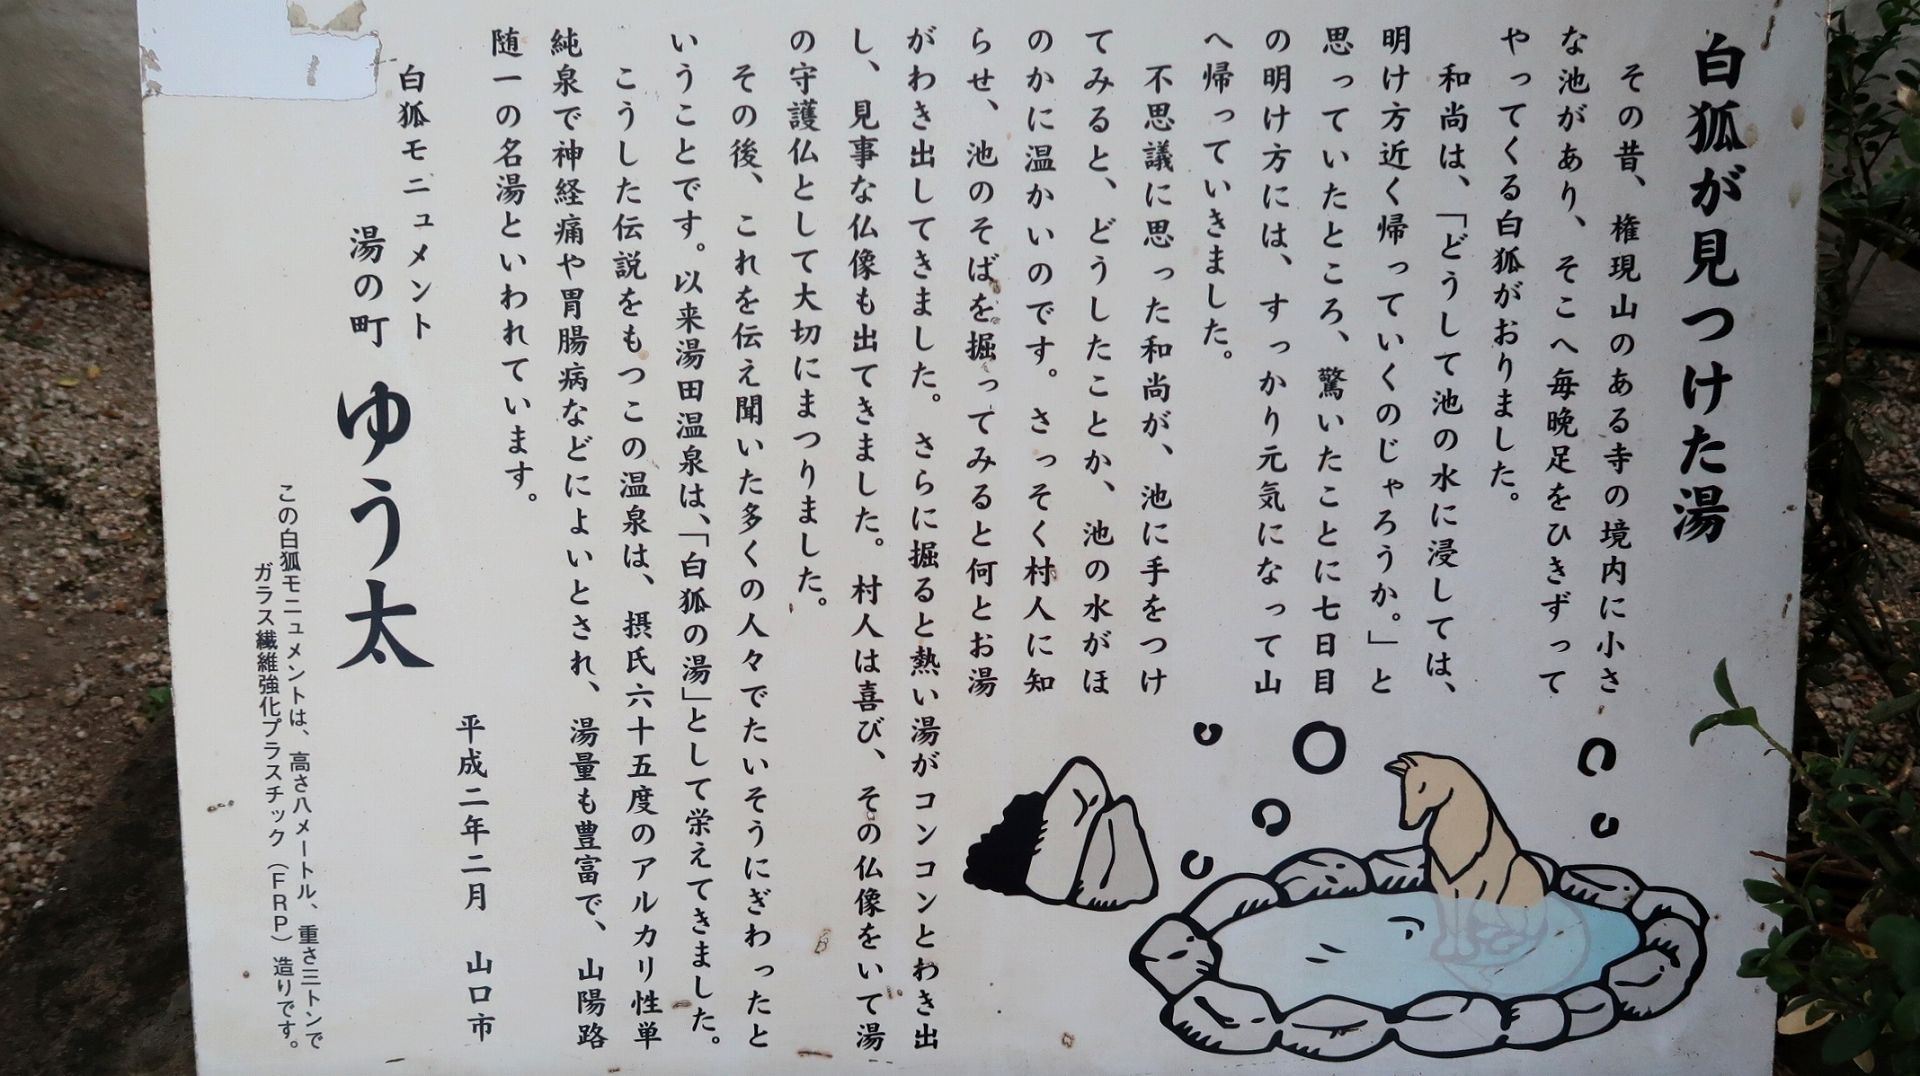 白狐が見つけた湯
その昔、権現山のある寺の境内に小さ
な池があり、そこへ毎晩足をひきずって
やってくる白狐がおりました。
和尚は、「どうして池の水に浸しては、
明け方近く帰っていくのじゃろうか。」と
思っていたところ、驚いたことに七日目
の明け方には、すっかり元気になって山
へ帰っていきました。
不思議に思った和尚が、池に手をつけ
てみると、どうしたことか、池の水がほ
のかに温かいのです。さっそく村人に知
らせ、池のそばを掘ってみると何とお湯
がわき出してきました。さらに掘ると熱い湯がコンコンとわき出
し、見事な仏像も出てきました。村人は喜び、その仏像をいて湯
の守護仏として大切にまつりました。
その後、これを伝え聞いた多くの人々でたいそうにぎわったと
いうことです。以来湯田温泉は、「白狐の湯」として栄えてきました。
こうした伝説をもつこの温泉は、摂氏六十五度のアルカリ性単
純泉で神経痛や胃腸病などによいとされ、湯量も豊富で、山陽路
随一の名湯といわれています。
平成二年二月 山口市
白狐モニュメント
湯の町 ゆう太
この白狐モニュメントは、高さ八メートル、重さ三トンで
ガラス繊維強化プラスチック（FRP）造りです。